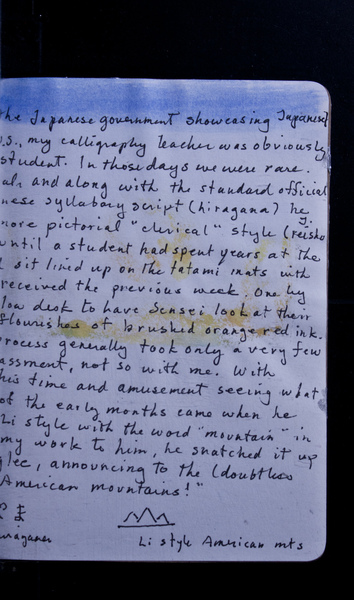 the Japanese government showcasing Japanese
U.S., my calligraphy teacher was obviously
student. In those days we were rare.
and along with the standard official
nese syllabary script (hiragana) he
more pictorial "clerical" style (reisho
until a student had spent years at the
I sit lined up on the tatami mats with
received the previous week. One by
low desk to have Sensei look at their
flourishes of brushed orange red ink.
rocess generally took only a very few
assment, not so with me. With
his time and amusement seeing what
of the early months came when he
Li style with the word "mountain" in
my work to him, he snatched it up
glee, announcing to the (doubtless
American mountains!"
Li style American mts